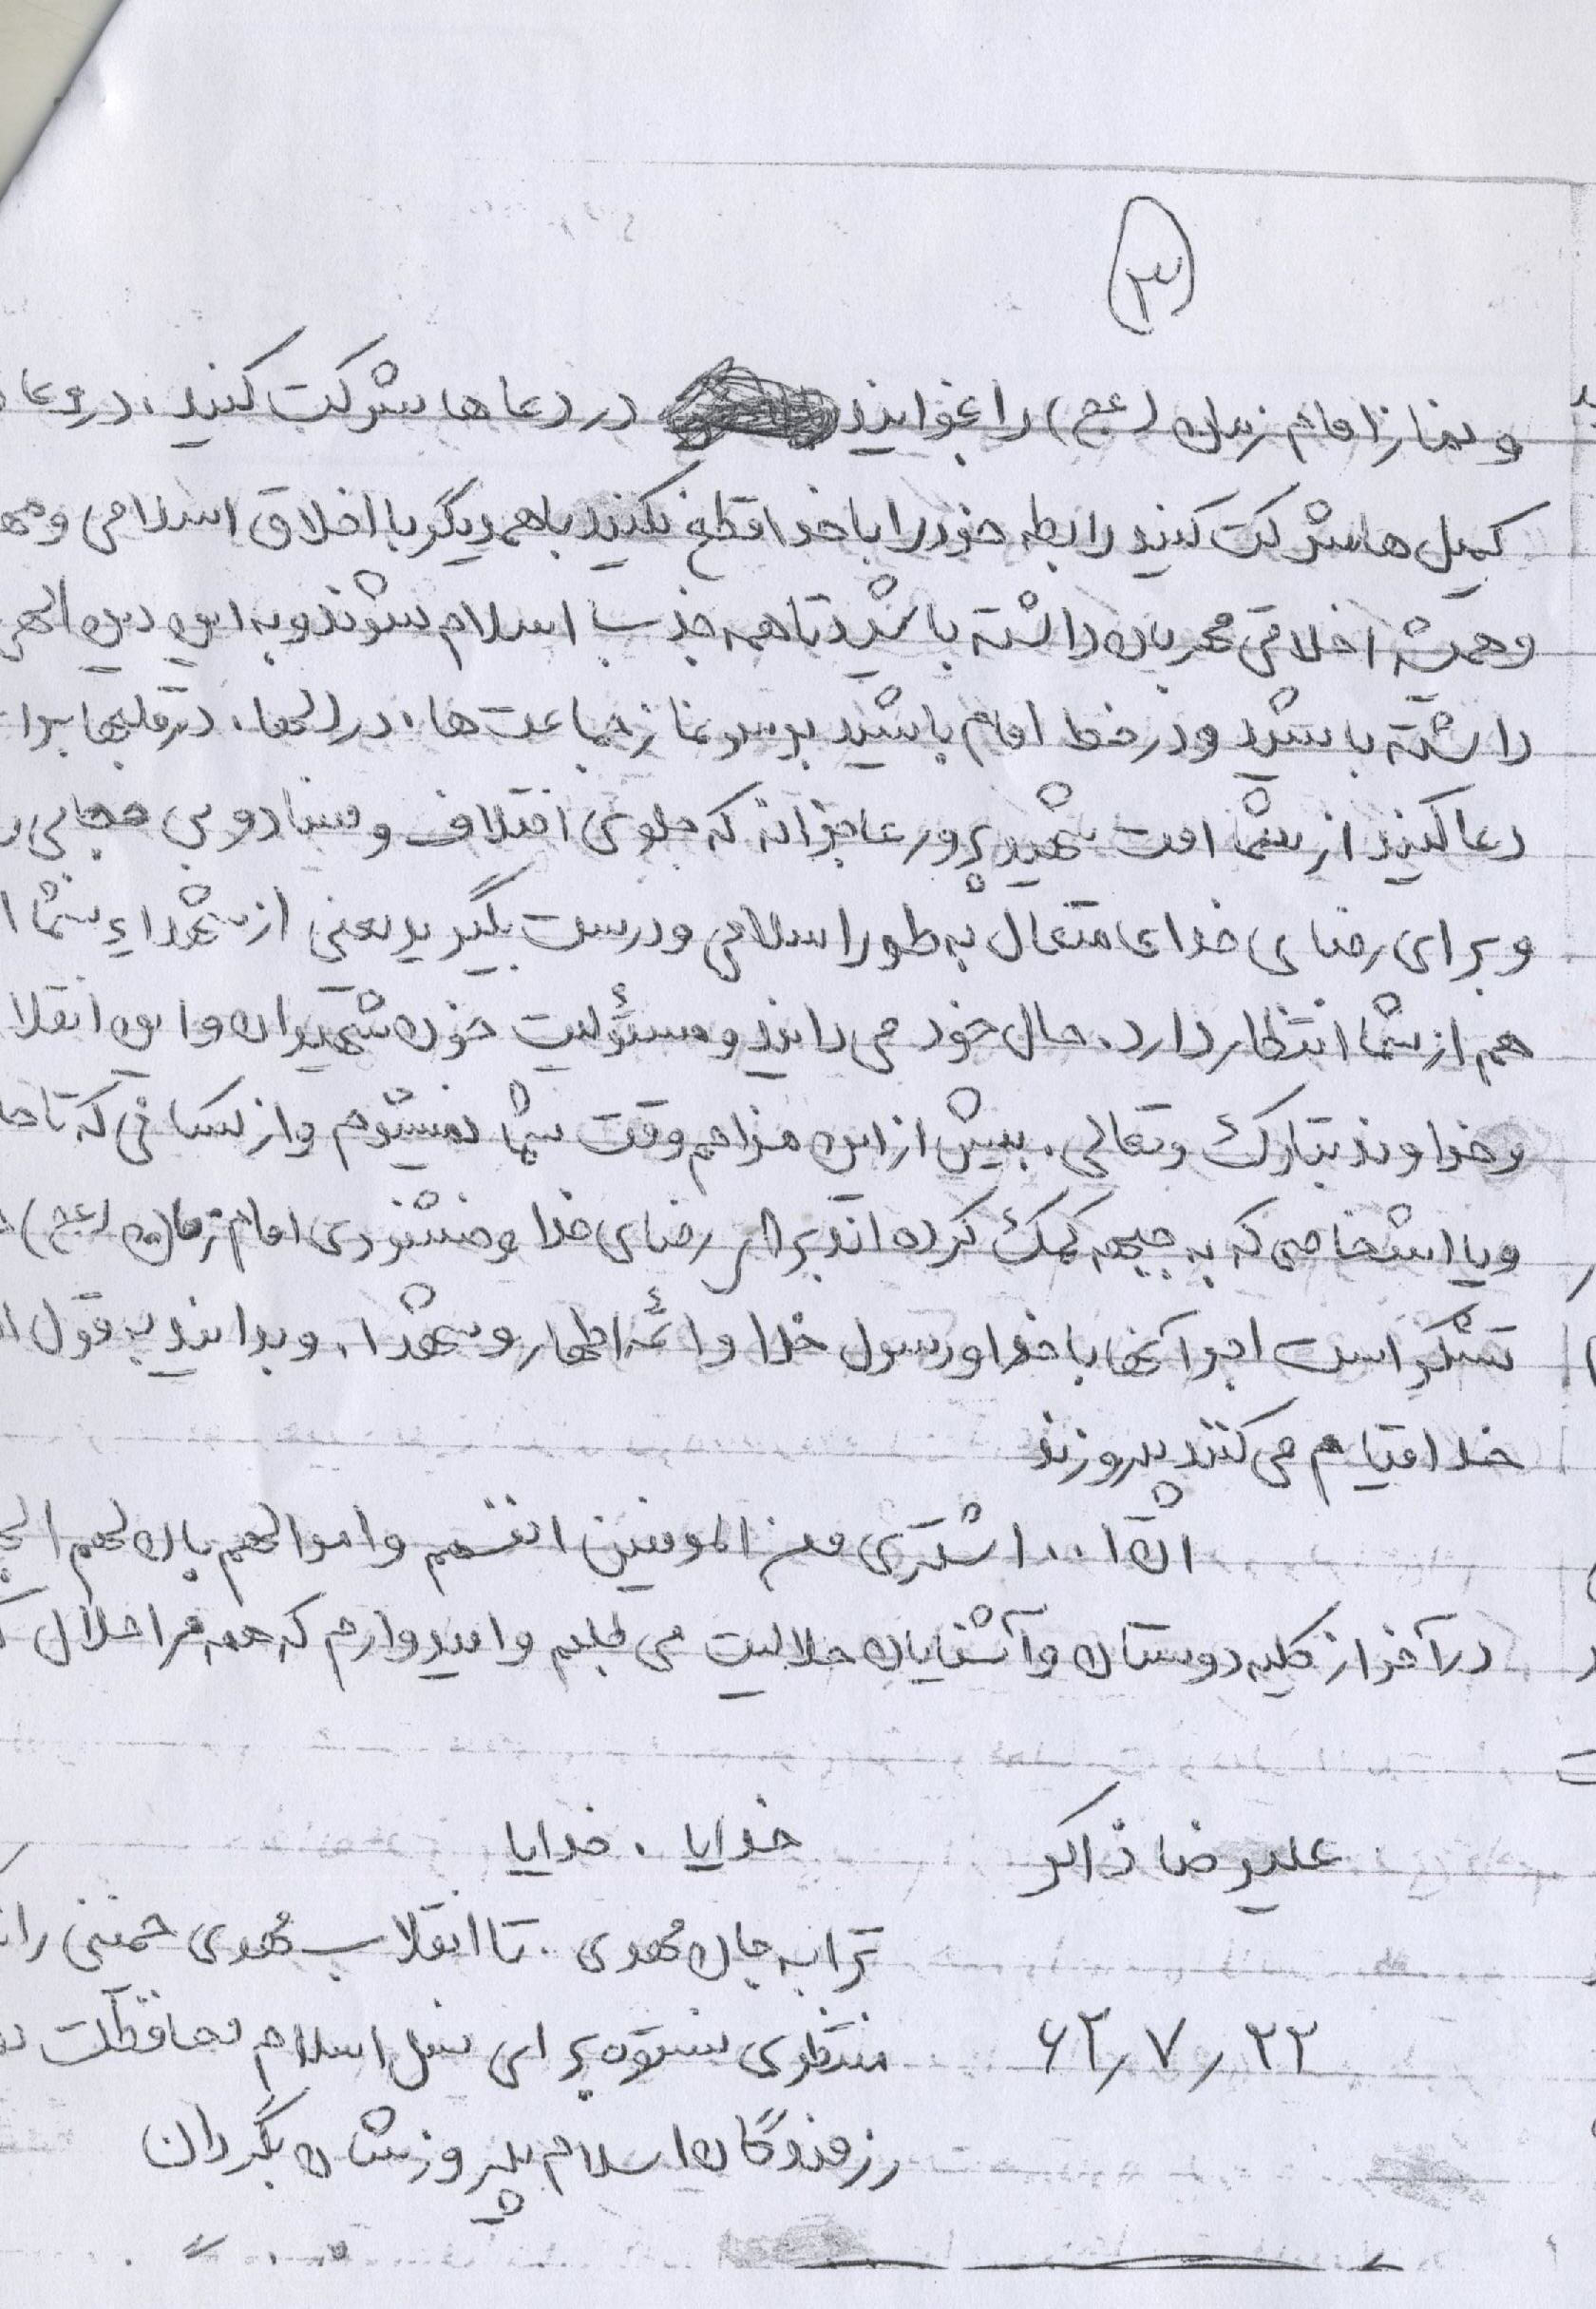 ۳
و نماز امام زمان (عج) را بخوانید در دعاها شرکت کنید. در دعا
کمیل ها شرکت کنید رابطه خود را با خدا قطع نکنید با همدیگر با اخلاق اسلامی و
و همیشه اخلاقی مهربان داشته باشید تا همه جذب اسلام شوند و به این دین الهی
داشته باشید و در خط امام باشید برسر نماز جماعت ها،
دعا کنید از شما امت شهید پرور عاجزانه که جلوی اختلاف و فساد و بی حجابی
و برای رضای خدای متعال به طور اسلامی و درست بگیرید یعنی از شهداء شما
هم از شما انتظار دارد. حال خود می دانید و مسئولیت خون شهیدان و این
و خداوند تبارک و تعالی. بیش از این مزاحم وقت شما نمیشوم و از کسانی که تا
و یا اشخاصی که به جبهه کمک کرده اند برای رضای خدا و خشنودی امام زمان (عج)
تشکر است اجر آنها با خدا و رسول خدا و ائمه اطهار و شهدا. و بدانید به قول
خدا قیام می کنند پیروزند
ان ا.. اشتری من المومنین انفسهم و اموالهم بان لهم
در آخر از کلیه دوستان و آشنایان حلالیت می طلبم و امیدوارم که همه مرا حلال
علیرضا ذاکر
خدایا . خدایا
ترا به جان مهدی . تا انقلاب مهدی خمینی را
۶۲٫۷٫۲۳
منتظری نستوه برای نسل اسلام محافظت
رزمندگان اسلام پیروزشان بگردان